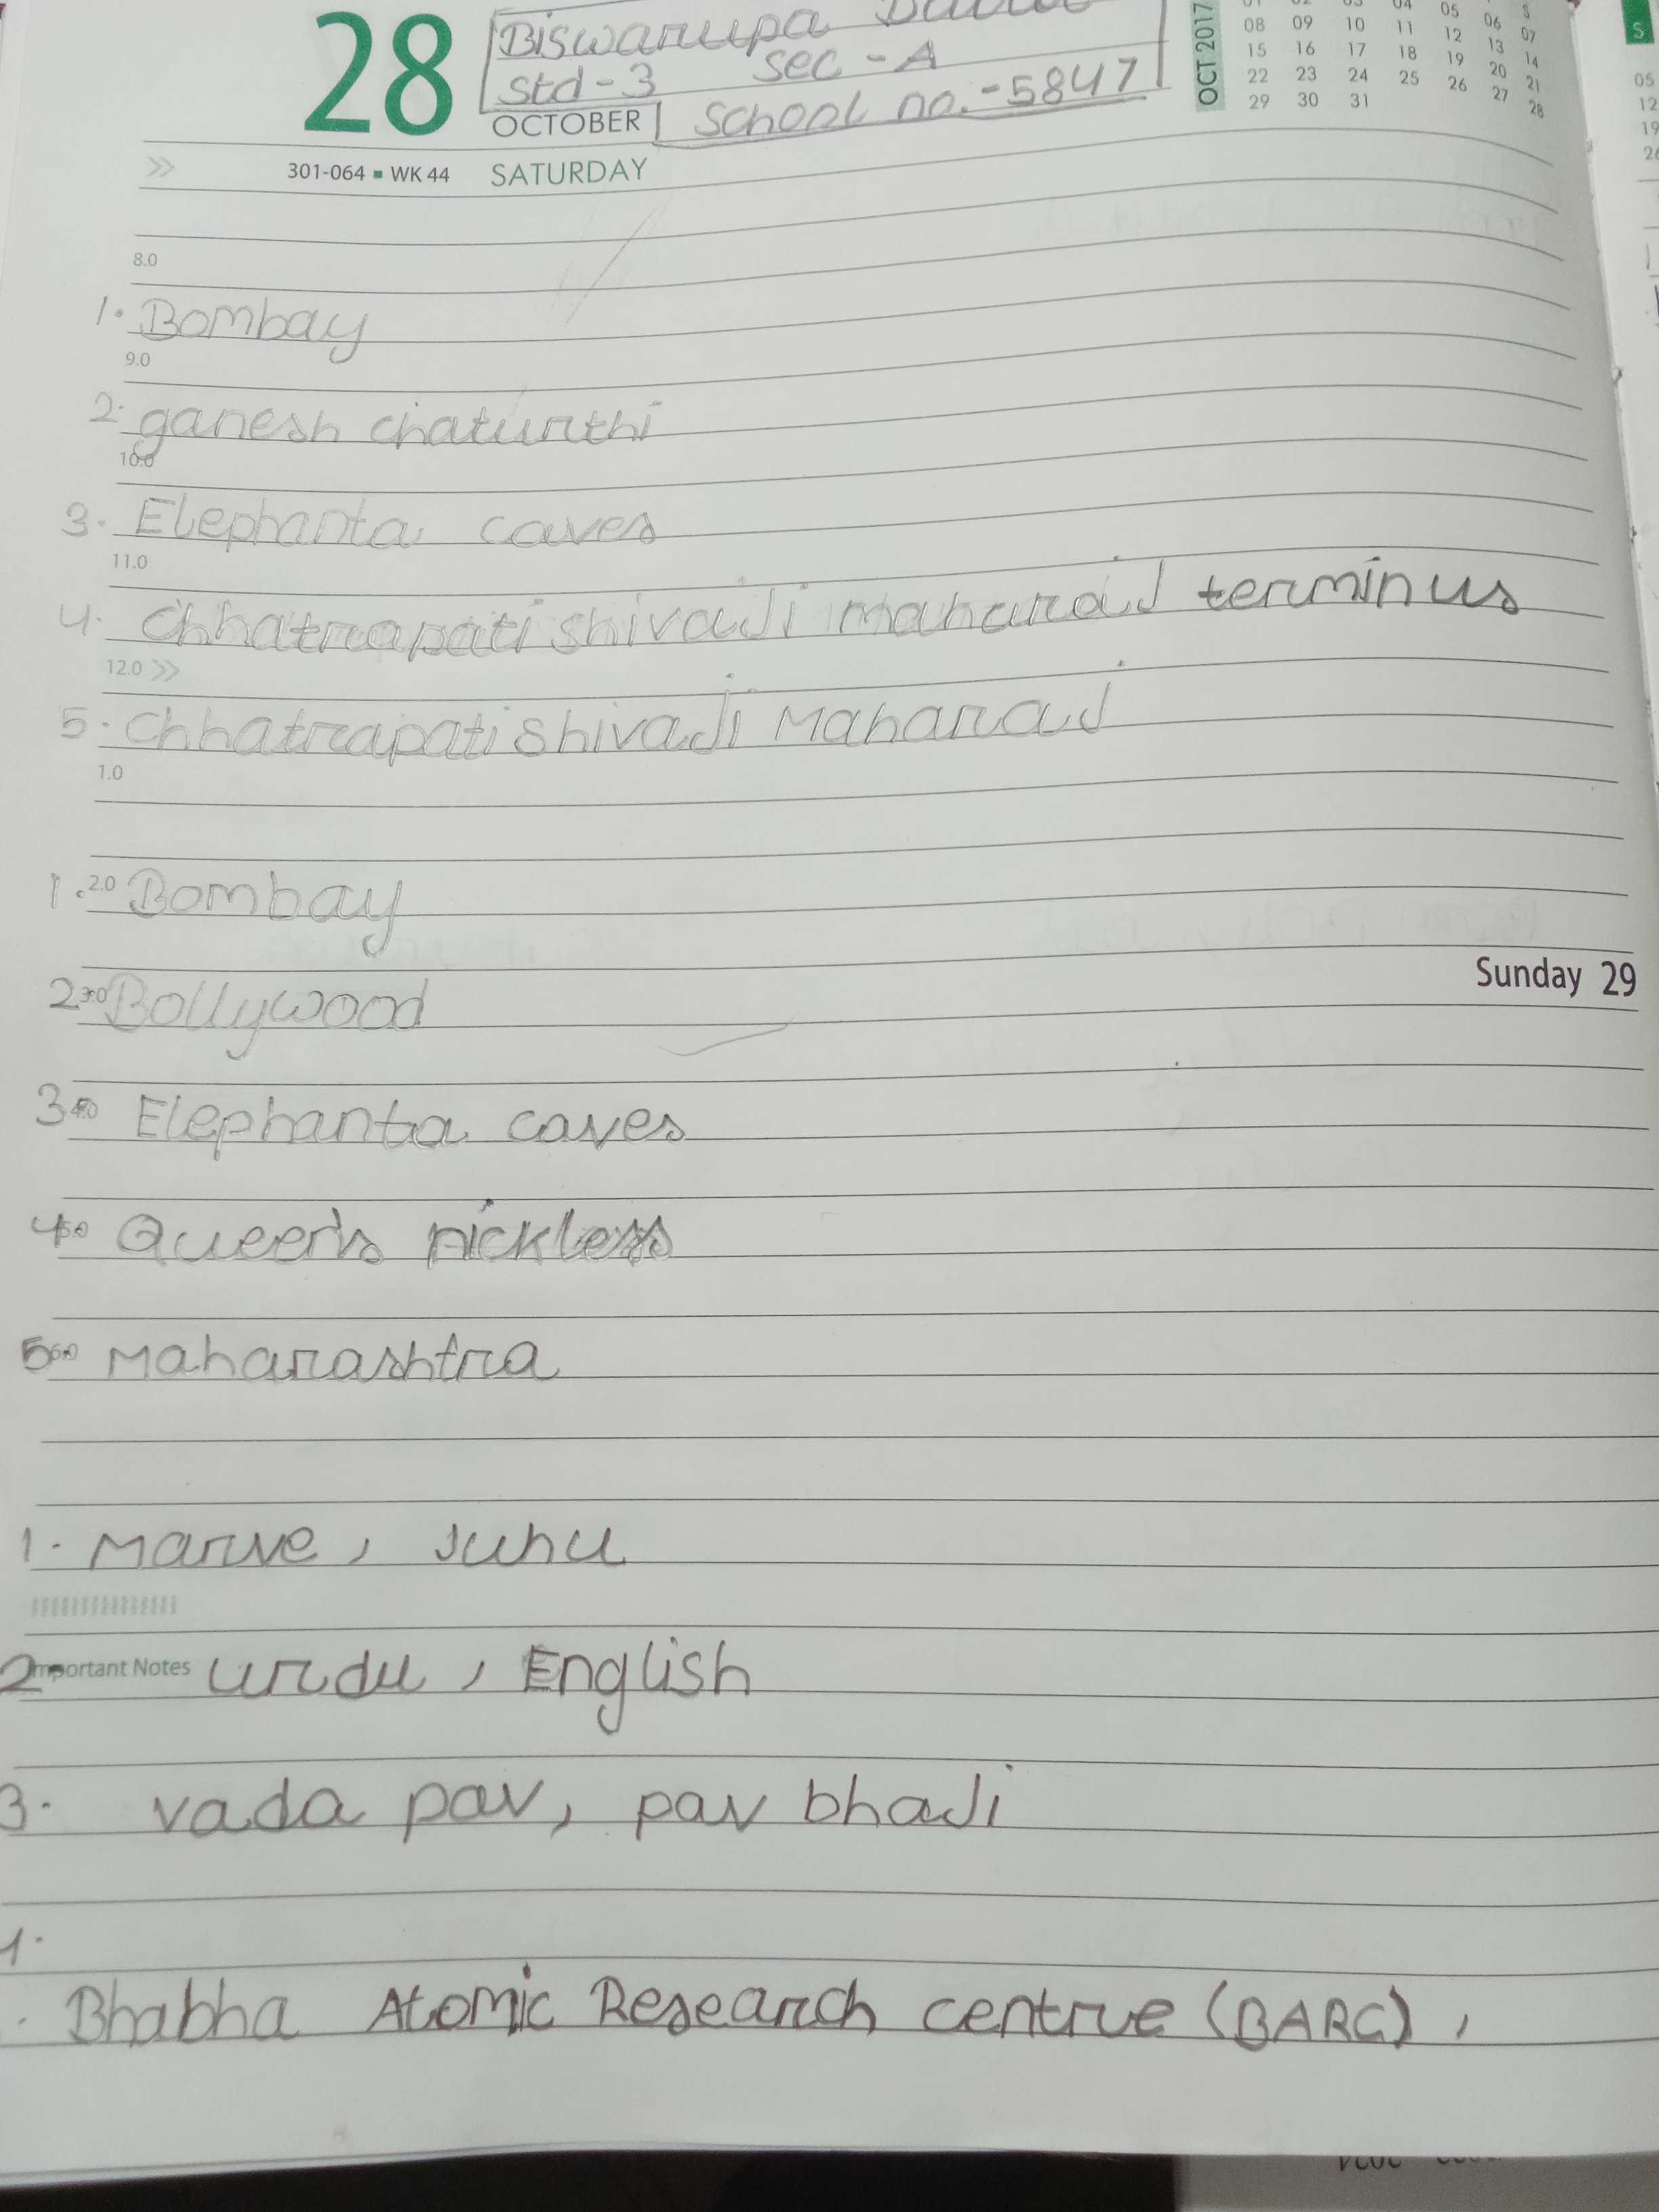 28
Biswarupa
Std-3 sec-A
OCTOBER School no.-5847
301-064 ▪ WK 44 SATURDAY
OCT 2017
08 09 10 11 12 13 14
15 16 17 18 19 20 21
22 23 24 25 26 27 28
29 30 31
8.0
1. Bombay
9.0
2. ganesh chaturthi
10.0
3. Elephanta caves
11.0
4. Chhatrapati shivaji maharaj terminus
12.0 >>
5. Chhatrapati shivaji Maharaj
1.0
1. 2.0 Bombay
Sunday 29
2. 3.0 Bollywood
3. 4.0 Elephanta caves
4. 5.0 Queen's nickless
5. 6.0 Maharashtra
1. Marve, Juhu
2. Important Notes urdu, English
3. vada pav, pav bhaji
Bhabha Atomic Research centre (BARC),